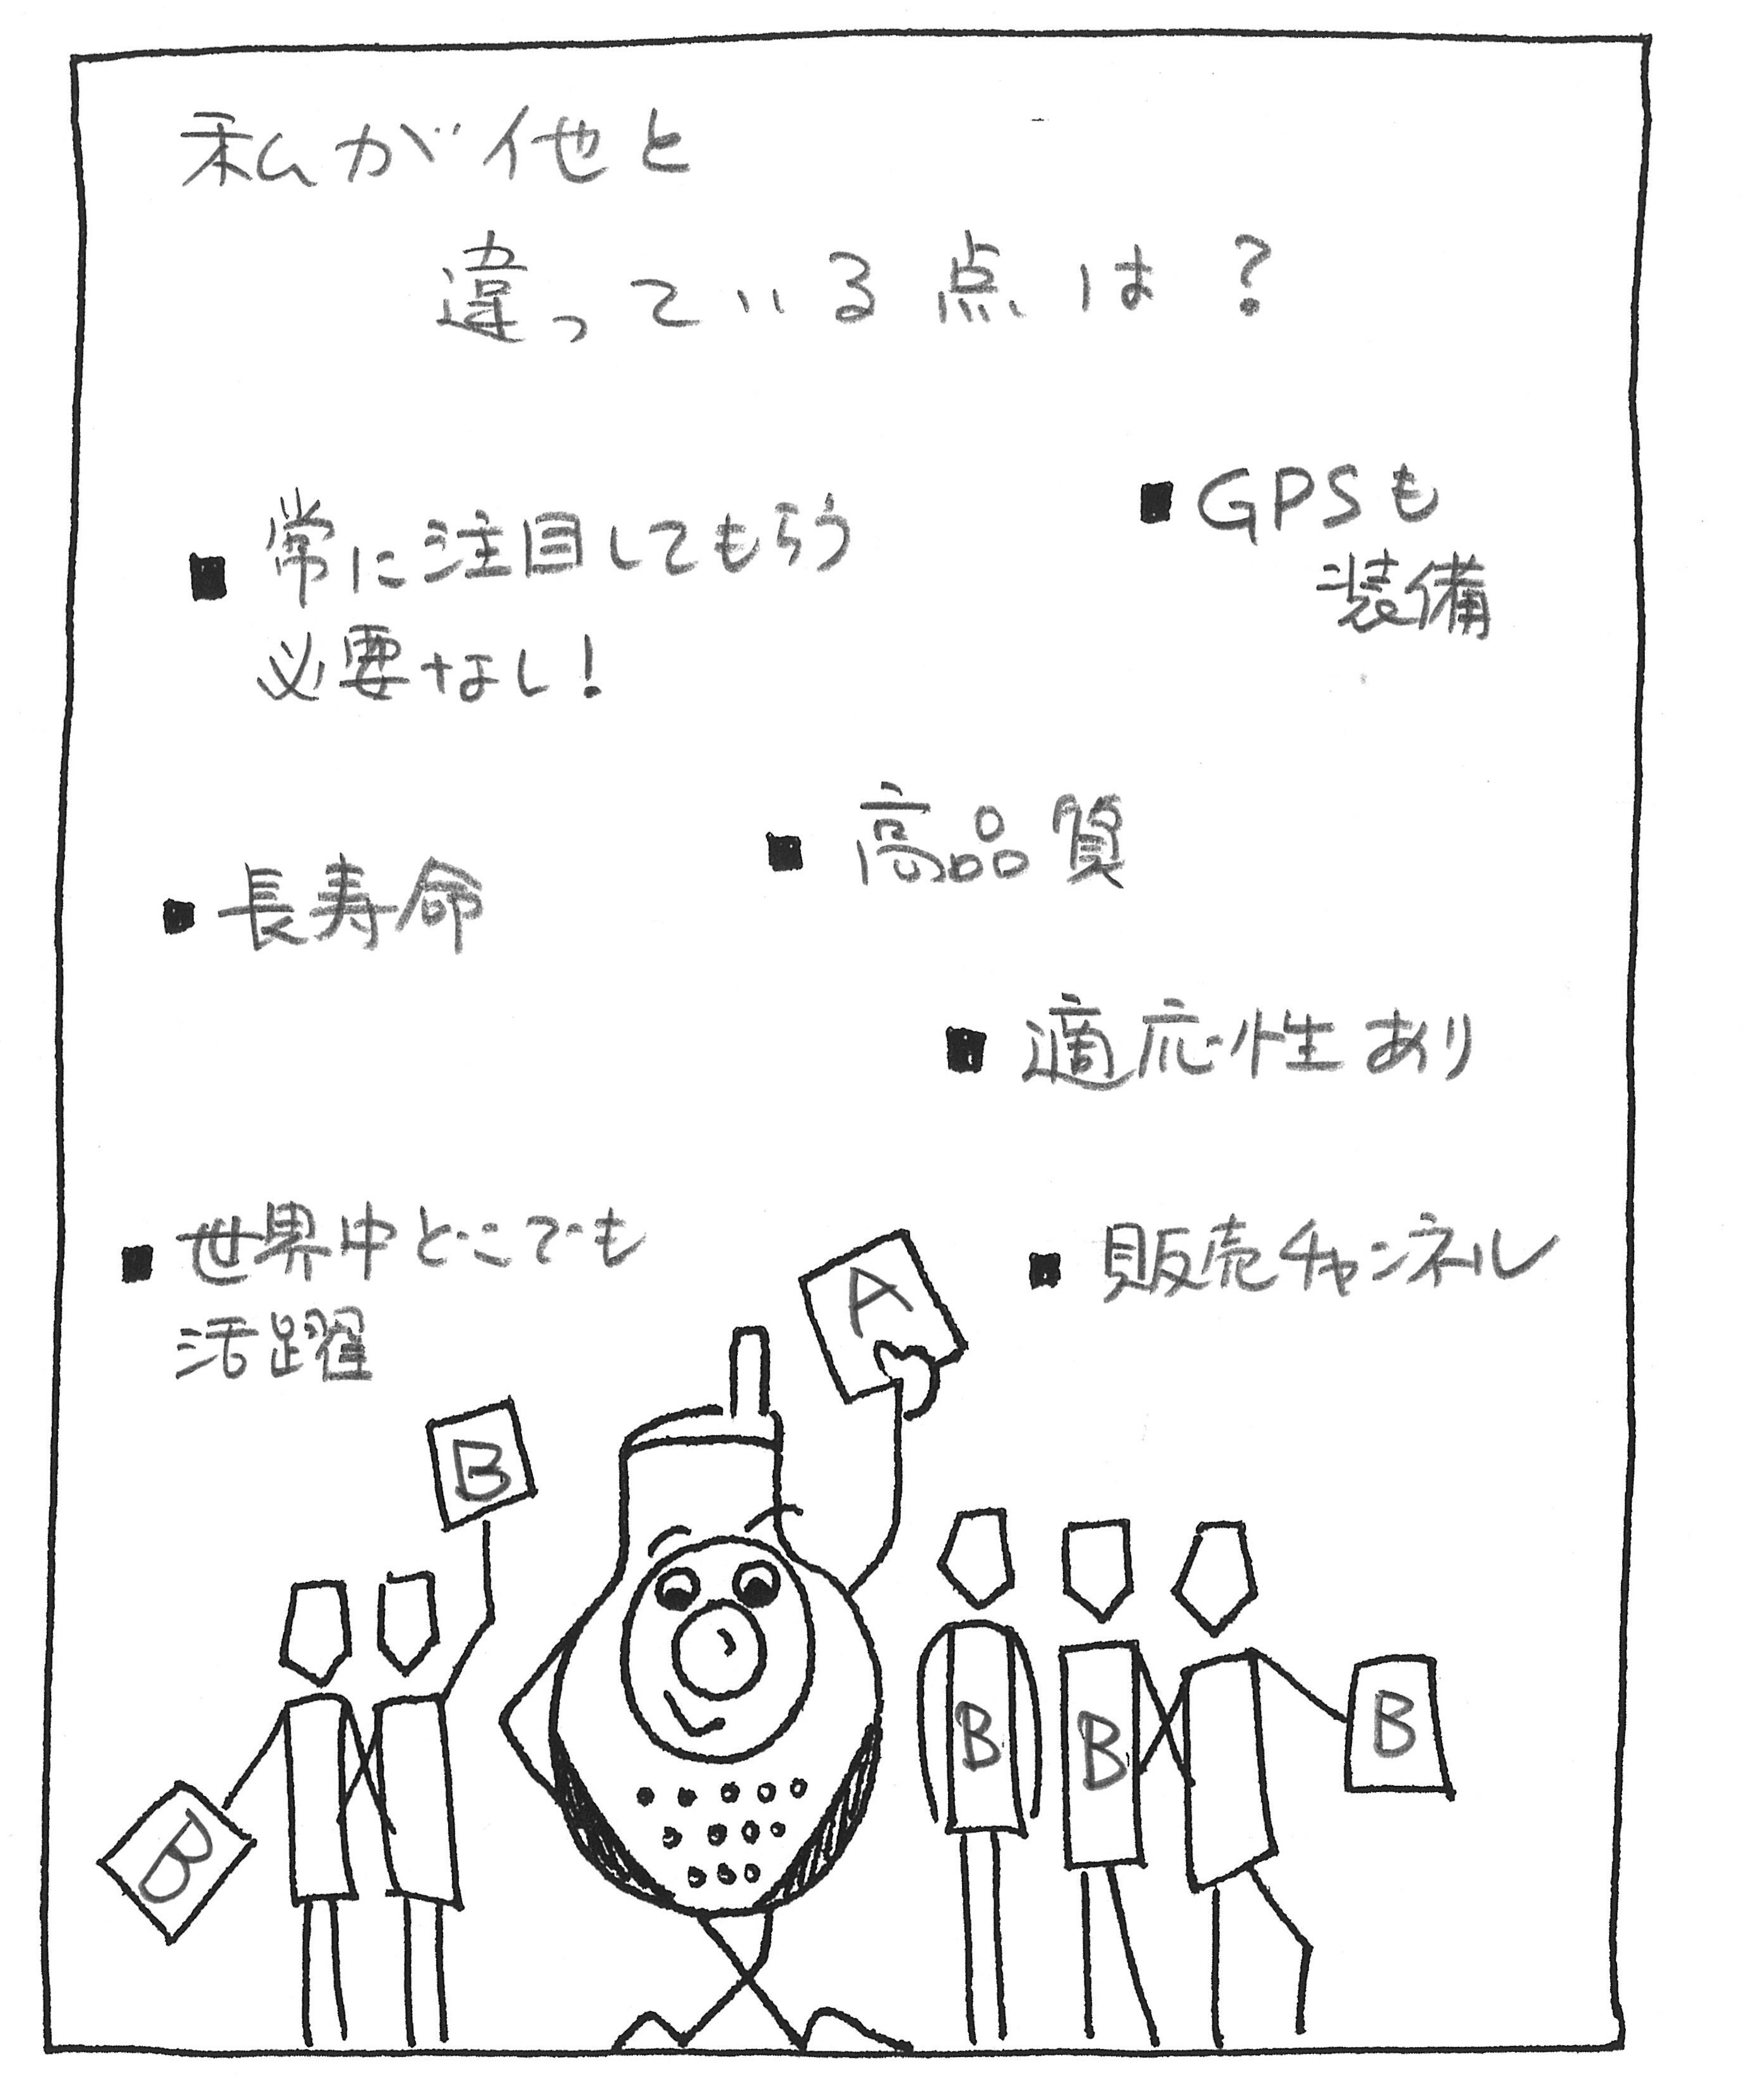 私が他と
違っている点は?
■ 常に注目してもらう
必要なし!
■ GPSも
装備
■ 高品質
■ 長寿命
■ 適応性あり
■ 世界中どこでも
活躍
■ 販売チャンネル
A
B
B
B
B
B